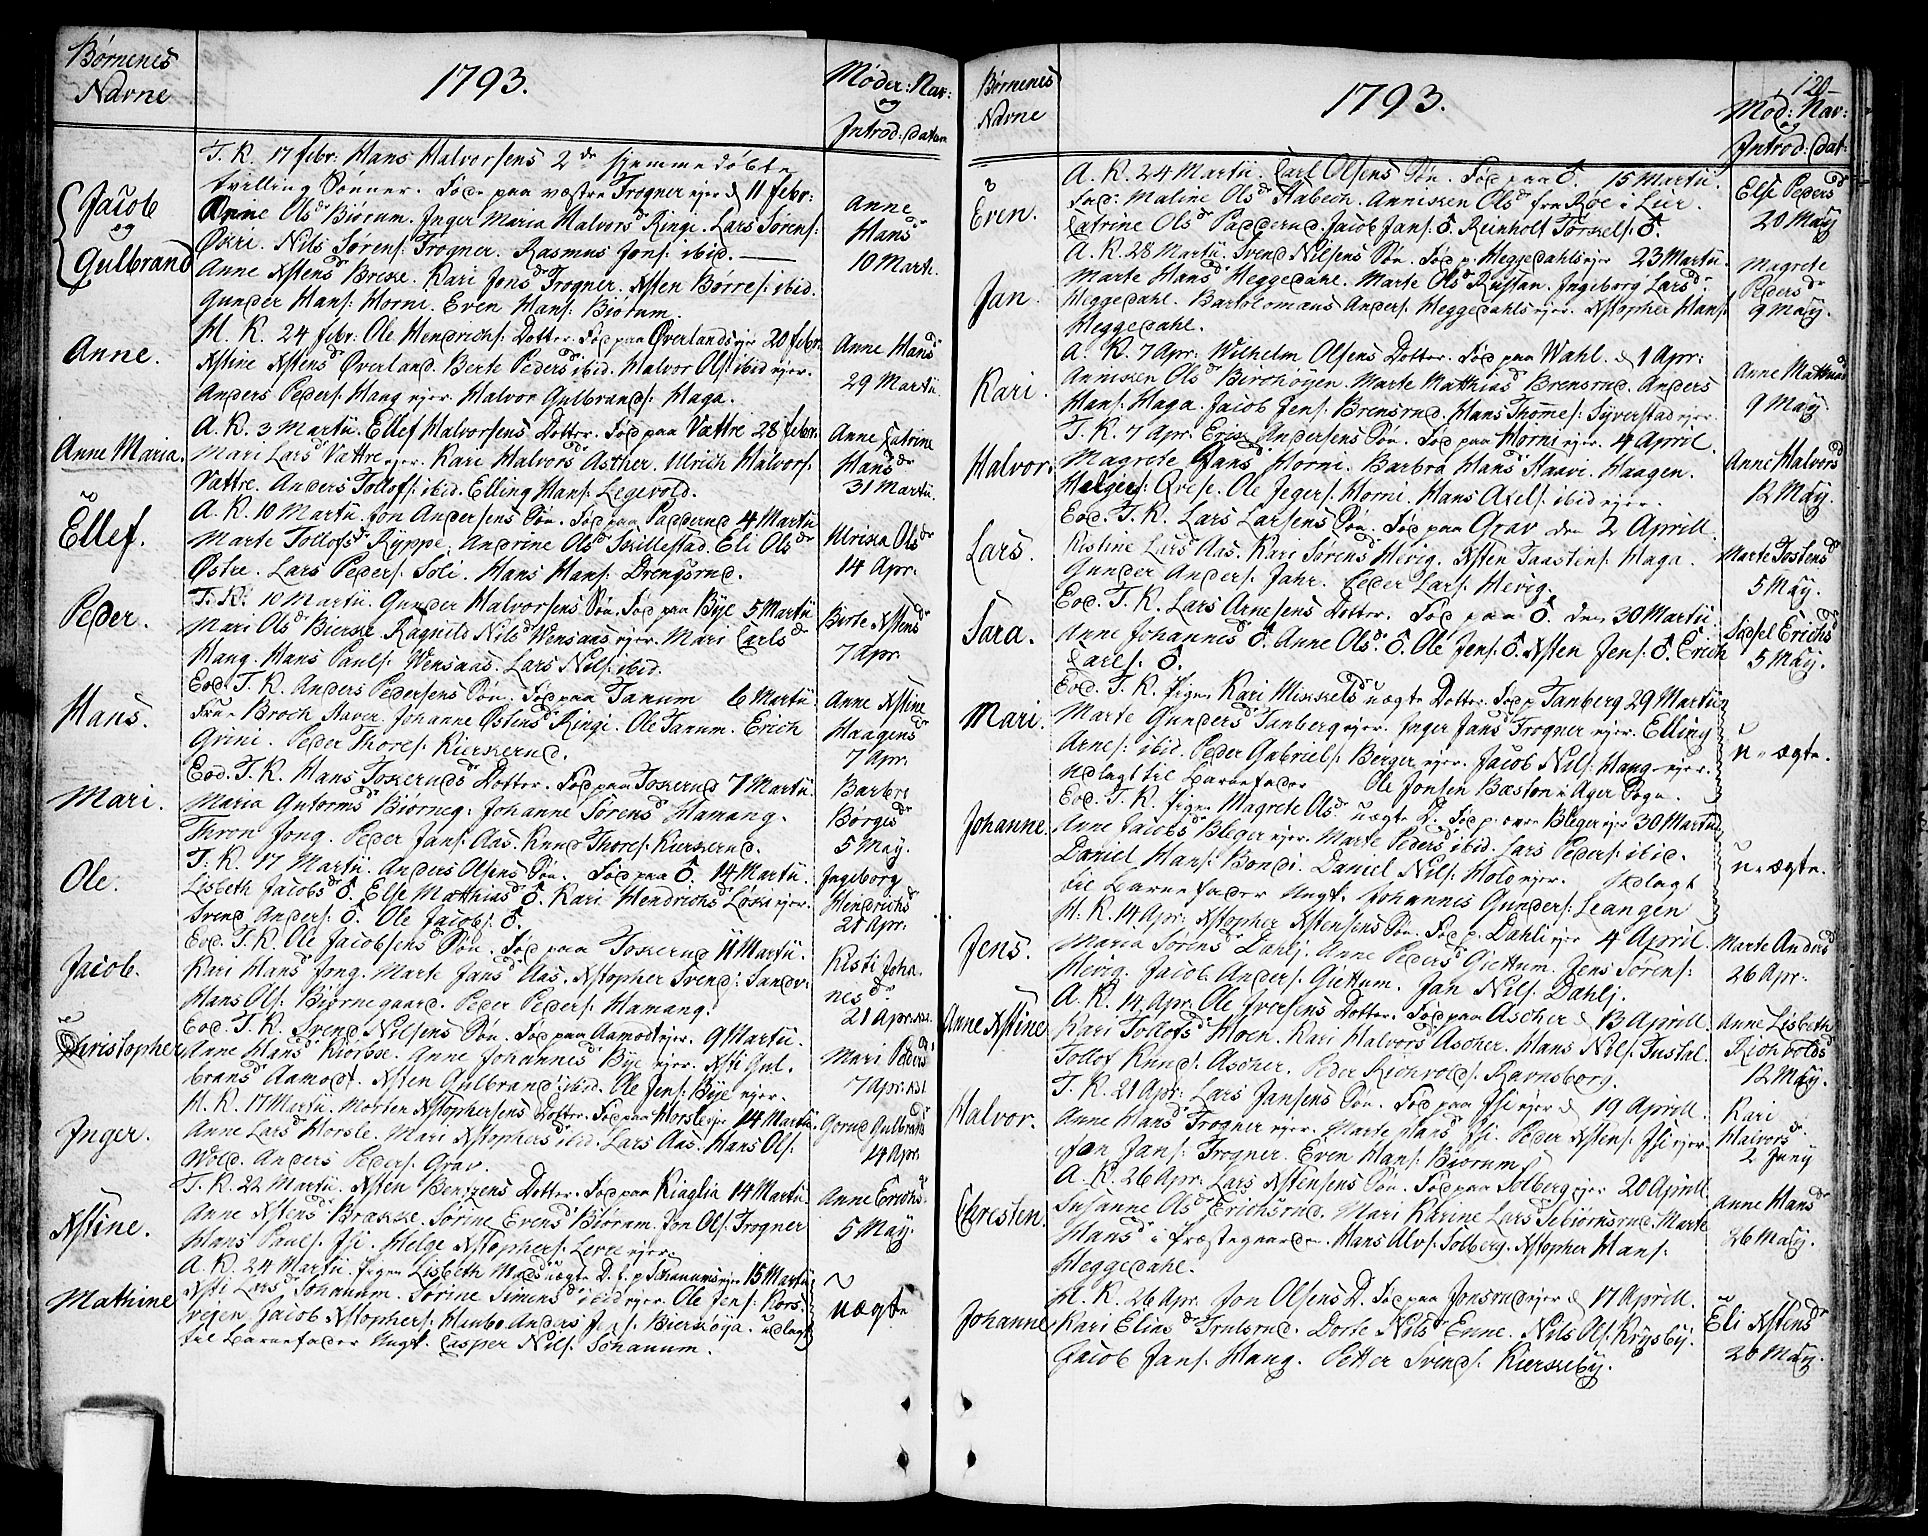 Børnenes
Navne
1793.
Møder: Nav:
og
Introd: daten
Jacob
og
Gulbrand
T. K. 17 febr: Hans Halvorsens 2de hjemme døbte
tvilling Sønner. Fød paa væstre Trogner ejer d 11 febr:
Anne Olsdr Biørum. Inger Maria Halvorsdr Ringi. Lars Sørens:
Økri. Nils Sørens: Trogner. Rasmus Jons: ibid.
Anne Xstensdr Brekke. Kari Jonsdr Trogner. Xsten Børres: ibid.
Gunder Hans: Horni. Even Hans: Biørum.
Anne
Hansdr
10 Marti.
Anne.
H. K. 24 febr: Ole Hendrichs: Dotter. Fød paa Øverlandsejer 20 febr:
Xstine Xstensdr Øverland. Berte Pedersdr ibid. Halvor Ols: ibid ejer.
Anders Peders: Haug ejer. Halvor Gulbrands: Haga.
Anne Hansdr
29 Martii.
Anne Maria.
A. K. 3 Martii. Ellef Halvorsens Dotter. Fød paa Vattre 28 febr:
Mari Larsdr Vattre ejer. Kari Halvorsdr Ascher. Ulrich Halvors:
Vattre. Anders Tollofs: ibid. Elling Hans: Legevold.
Anne Catrine
Hansdr
31 Martii.
Ellef.
A. K. 10 Martii. Jon Andersens Søn. Fød paa Paddernd 4 Martii
Marte Tollofsdr Ryppe. Andrine Olsdr Skillestad. Eli Olsdr
Østre. Lars Peders: Soli. Hans Hans: Drengsrud.
Ulrikka Olsdr
14 Apr.
Peder.
T. K. 10 Martii. Gunder Halvorsens Søn. Fød paa Bye 5 Martii
Mari Olsdr Bierke. Ragnild Nilsdr Wensaas ejer. Mari Carlsdr
Haug. Hans Pauls: Wensaas. Lars Nils: ibid.
Birte Xstensdr
7 Apr.
Hans.
Eod. T. K. Anders Pedersens Søn. Fød paa Tanum 6 Martii.
Frue Broch Haven. Johanne Østensdr Ringi. Ole Tanum. Erich
Grini. Peder Thores: Kierkernd.
Anne Xstine
Haagensdr
7 Apr.
Mari.
Eod. T. K. Hans Tokerudsdr Dotter. Fød paa Tokerud 7 Martii.
Maria Gutormsdr Biørneg: Johanne Sørensdr Hamang.
Thron Jong. Peder Jans: Aas. Knud Thores: Kierkernd.
Barbre
Børgesdr
5 May.
Ole.
T. K. 17 Martii. Anders Olsens Søn. Fød paa ♂. 14 Martii.
Lisbeth Jacobsdr ♂. Else Matthiasdr ♂. Kari Hendrichsdr Løkke ejer.
Svend Anders: ♂. Ole Jacobs: ♂.
Ingeborg
Hendrichsdr
21 Apr.
Jacob.
Eod. T. K. Ole Jacobsens Søn. Fød paa Tokerud 11 Martii.
Kari Hansdr Jong. Marte Jansdr Aas. Xstopher Svends: Sandv:
Hans Ols: Biørnegaard. Peder Peders: Hamang:
Kisti Johan
nesdr
21 Apr.
Christopher
Eod. T. K. Svend Nilsens Søn. Fød paa Aamodt ejer. 9 Martii.
Anne Hansdr Kiørbøe. Anne Johannesdr Bye ejer. Xsti Gul.
bransdr Aamodt. Xsten Gulbrands: ibid. Ole Jens: Bye ejer.
Mari Pedersdr
7 Apr.
Inger.
H. K. 17 Martii. Morten Xstophersens Dotter. Fød paa Horsle ejer 14 Martii.
Anne Larsdr Horsle. Mari Xstophersdr ibid. Lars Aas. Hans Ols:
Wold. Anders Peders: Grav.
Gornd Gulbrdr
14 Apr.
Xstine.
T. K. 22 Martii. Xsten Bentzens Dotter. Fød paa Kiaglia 14 Martii.
Anne Xstensdr Brække. Sørine Evensdr Biørum. Jon Ols: Trogner
Hans Pauls: Isi. Helge Xstophers: Levre ejer.
Anne Erichsdr
5 May.
Mathine
A. K. 24 Martii. Pigen Lisbeth Madsdr uægte D. f. p Johanumsejer 15 Martii
Xsti Larsdr Johanum. Sørine Simensdr ibid ejer. Ole Jens: Kors
vegen Jacob Xstophers: Hunbo. Anders Jens: Bierkøya. udlagt
til Barnefader Ungk. Casper Nils: Johanum.
uægte
Børnenes
Navne
1793.
120
Mød: Nav:
og
Introd: dat:
Even.
A. K. 24 Martii. Carl Olsens Søn. Fød paa ♂. 15 Martii.
Fad: Maline Olsdr Habeck. Annikken Olsdr fra Roe i Lier.
Catrine Olsdr Paddernd. Jacob Jans: ♂. Reinholt Torkels: ♂.
Else Pedersdr
20 May
Jan.
A. K. 28 Martii. Svend Nilsens Søn. Fød p: Heggedahlsejer 23 Martii.
Marte Hansdr Heggedahl. Marte Olsdr Rustan. Ingeborg Larsdr
Heggedahl. Bartolomæus Anders: Heggedahlsejer. Xstopher Hans:
Heggedahl.
Magrete
Pedersdr
9 May.
Kari.
A. K. 7 Apr: Wilhelm Olsens Dotter. Fød paa Wahl. d 1 Apr:
Annikken Olsdr Birchøyen. Marte Matthiasdr Brensrud. Anders
Hans: Haga. Jacob Jens: Brensrud. Hans Thomes: Syverstad ejer.
Anne Matthiasd
9 May.
Halvor.
T. K. 7 Apr. Erik Andersens Søn. Fød paa Horni ejer. 4 April
Magrete Jansdr Horni. Barbra Hansdr Haavi. Haagen
Helges: Qvise. Ole Jegers: Horni. Hans Axels: ibid ejer.
Anne Halvorsd
12 May.
Lars.
Eod. T. K. Lars Larsens Søn. Fød paa Grav den 2 Aprill.
Kistine Larsdr Aas. Kari Sørensdr Hevig. Xsten Taastins: Haga.
Gunder Anders: Jahr. Peder Lars: Hevig.
Marte Tostensdr
5 May.
Sara.
Eod. T. K. Lars Arnesens Dotter. Fød paa ♂. den 30 Martii.
Anne Johannesdr ♂. Anne Olsdr. ♂. Ole Jens: ♂. Xsten Jens: ♂. Erich
Carls: ♂.
Sidsel Erichsdr
5 May.
Mari.
Eod. T. K. Pigen Kari Mikkelsdr uægte Dotter. Fød p Tanberg 29 Martii
Marte Gundersdr Tanberg ejer. Inger Jansdr Trogner ejer. Elling
Arnes: ibid. Peder Gabriels: Berger ejer. Jacob Nils: Haug ejer.
Udlagt til Barnefader Ole Jonsen Bæston i Ager Sogn.
u-ægte.
Johanne.
Eod. T. K. Pigen Magrete Olsdr uægte D. Fød p: øvre Bleger ejer 30 Martii
Anne Jacobsdr Bleger ejer. Marte Pedersdr ibid. Lars Peders: ibid.
Daniel Hans: Bondi. Daniel Nils: Holo ejer. Udlagt
til Barnefader Ungk. Johannes Gunders: Leangen
u-ægte.
Jens.
H. K. 14 Apr: Xstopher Xstensens Søn. Fød p. Dahli ejer 4 Aprill.
Maria Sørensdr Dahlj. Anne Pedersdr Giettum. Jens Sørens:
Hevig. Jacob Anders: Giettum. Jan Nils: Dahlj.
Marte Andersd
26 Apr.
Anne Xstine
A. K. 14 Apr: Ole Iversens Dotter. Fød paa Ascher d 13 Aprill.
Kari Tollofsdr Hoen. Kari Halvorsdr Ascher. Hans Nils: Justal.
Tollof Knuds: Ascher. Peder Richvolds: Ravnsborg.
Anne Lisbeth
Richvoldsd
12 May.
Halvor.
T. K. 21 Apr: Lars Jansens Søn. Fød paa Isi ejer d 19 Aprill.
Anne Hansdr Trogner ejer. Marte Hansdr Isi. Peder Xstens: Isi ejer.
Jan Jans: Trogner. Even Hans: Biørum.
Kari
Halvorsdr
2 Juny
Chresten.
A. K. 26 Apr. Lars Xstensens Søn. Fød paa Solberg ejer 20 Aprill.
Susanne Olsdr Erichsrud. Mari Karine Larsdr Sebiørnsrud. Marte
Hansdr i Præstegaarden. Hans Alvs: Solberg. Xstopher Hans:
Heggedahl.
Anne Hansdr
26 May.
Johanne
H. K. 26 Apr. Jon Olsens D. Fød paa Jonsrud ejer d 17 Aprill.
Kari Eliasdr Trulsrud. Dorte Nilsdr Enne. Nils Ols: Krysby.
Jacob Jans: Haug. Petter Svends: Kierkeby.
Eli Xstensdr
26 May.